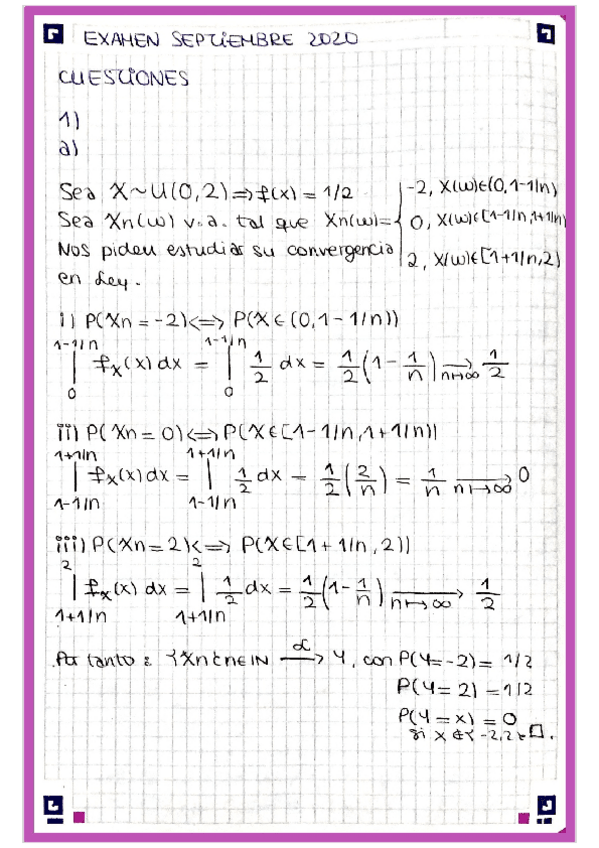 EXAMEN SEPTIEMBRE 2020
CUESTIONES
1)
a)
Sea X~U(0,2)⇒f(x) = 1/2
Sea Xn(ω) v.a. tal que Xn(ω)= { -2, X(ω)∈(0,1-1/n)
0, X(ω)∈[1-1/n,1+1/n)
2, X(ω)∈[1+1/n,2)
Nos piden estudiar su convergencia
en Ley.
i) P(Xn = -2)⟺ P(X∈(0,1-1/n))
∫_0^{1-1/n} fx(x) dx = ∫_0^{1-1/n} 1/2 dx = 1/2 (1 - 1/n) →_{n→∞} 1/2
ii) P(Xn = 0)⟺ P(X∈[1-1/n,1+1/n))
∫_{1-1/n}^{1+1/n} fx(x) dx = ∫_{1-1/n}^{1+1/n} 1/2 dx = 1/2 (2/n) = 1/n →_{n→∞} 0
iii) P(Xn = 2)⟺ P(X∈[1+1/n,2))
∫_{1+1/n}^2 fx(x) dx = ∫_{1+1/n}^2 1/2 dx = 1/2 (1 - 1/n) →_{n→∞} 1/2
Por tanto: {Xn}n∈IN →^L Y, con P(Y=-2) = 1/2
P(Y= 2) = 1/2
P(Y = x) = 0
si x ∉{-2,2} □.